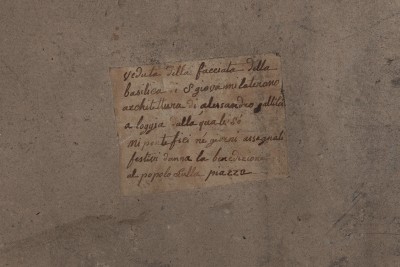 veduta della facciata della
basilica di S giovanni laterano
architettura di alessandro gallilei
a loggia dalla quale
pontefici ne giorni assegnati
festivi danno la benedizione
al popolo dalla